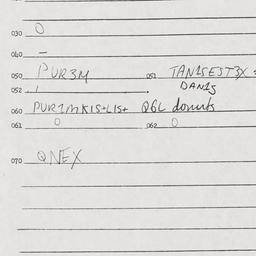 030 O
040 -
050 PUR3M 051 TAN1SEST3X
DAN1S
052 1 .
060 PUR1MK1S+L1S+ Q6L donuts
061 O 062 O
070 QNEX